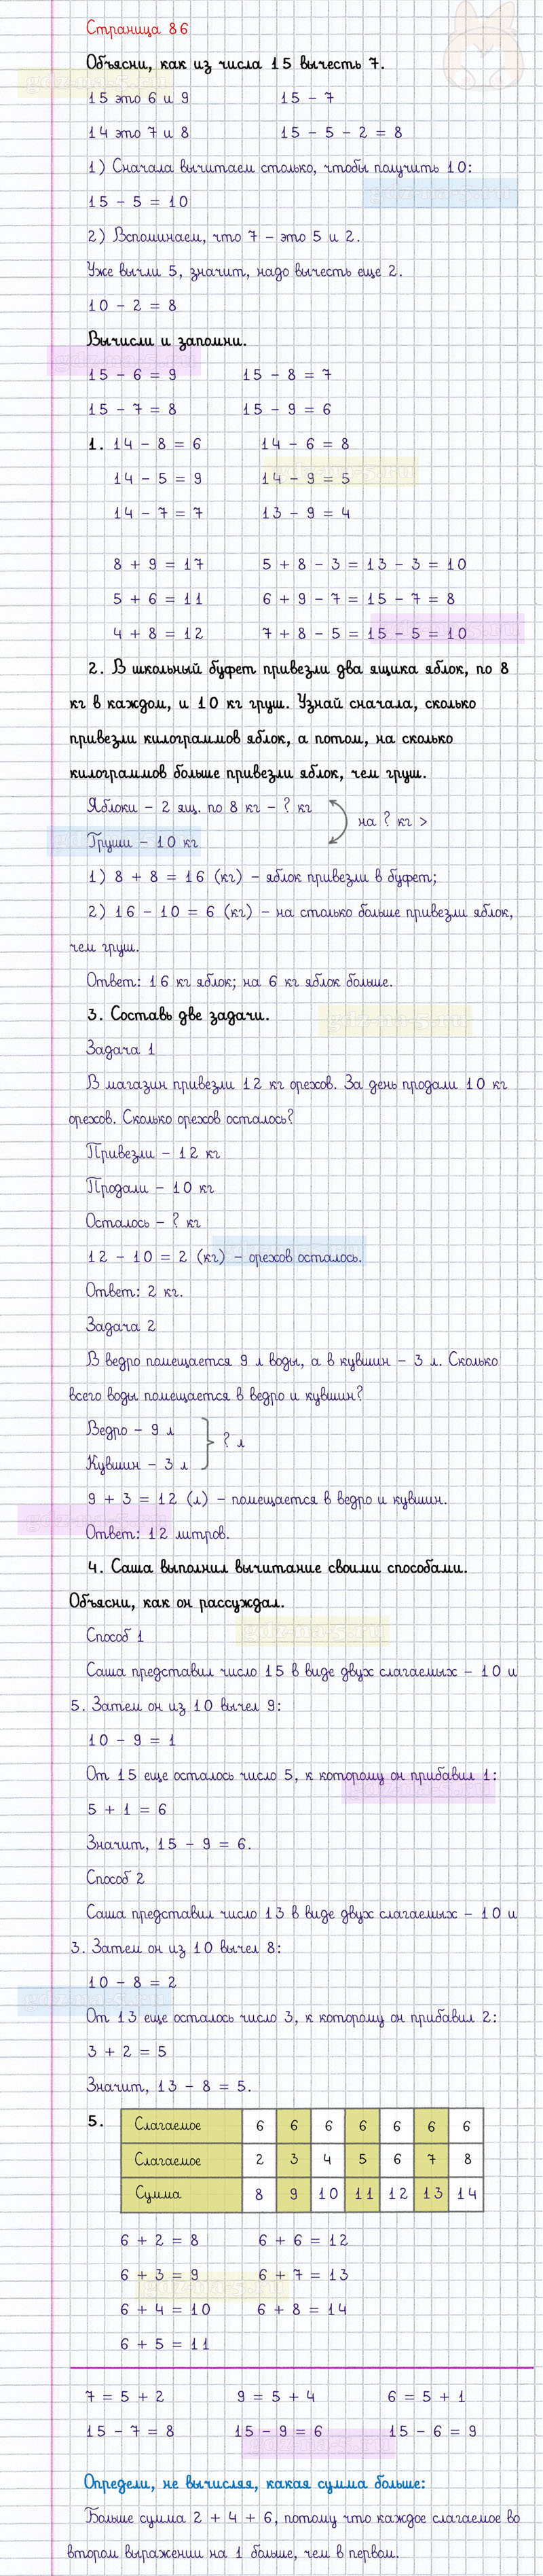 Страница 86
Объясни, как из числа 15 вычесть 7.
15 это 6 и 9 15 - 7
14 это 7 и 8 15 - 5 - 2 = 8
1) Сначала вычитаем столько, чтобы получить 10:
15 - 5 = 10
2) Вспоминаем, что 7 - это 5 и 2.
Уже вычли 5, значит, надо вычесть еще 2.
10 - 2 = 8
Вычисли и запомни.
15 - 6 = 9 15 - 8 = 7
15 - 7 = 8 15 - 9 = 6
1. 14 - 8 = 6 14 - 6 = 8
14 - 5 = 9 14 - 9 = 5
14 - 7 = 7 13 - 9 = 4
8 + 9 = 17 5 + 8 - 3 = 13 - 3 = 10
5 + 6 = 11 6 + 9 - 7 = 15 - 7 = 8
4 + 8 = 12 7 + 8 - 5 = 15 - 5 = 10
2. В школьный буфет привезли два ящика яблок, по 8
кг в каждом, и 10 кг груш. Узнай сначала, сколько
привезли килограммов яблок, а потом, на сколько
килограммов больше привезли яблок, чем груш.
Яблоки - 2 ящ. по 8 кг - ? кг
на ? кг >
Груши - 10 кг
1) 8 + 8 = 16 (кг) - яблок привезли в буфет;
2) 16 - 10 = 6 (кг) - на столько больше привезли яблок,
чем груш.
Ответ: 16 кг яблок; на 6 кг яблок больше.
3. Составь две задачи.
Задача 1
В магазин привезли 12 кг орехов. За день продали 10 кг
орехов. Сколько орехов осталось?
Привезли - 12 кг
Продали - 10 кг
Осталось - ? кг
12 - 10 = 2 (кг) - орехов осталось.
Ответ: 2 кг.
Задача 2
В ведро помещается 9 л воды, а в кувшин - 3 л. Сколько
всего воды помещается в ведро и кувшин?
Ведро - 9 л
? л
Кувшин - 3 л
9 + 3 = 12 (л) - помещается в ведро и кувшин.
Ответ: 12 литров.
4. Саша выполнил вычитание своими способами.
Объясни, как он рассуждал.
Способ 1
Саша представил число 15 в виде двух слагаемых - 10 и
5. Затем он из 10 вычел 9:
10 - 9 = 1
От 15 еще осталось число 5, к которому он прибавил 1:
5 + 1 = 6
Значит, 15 - 9 = 6.
Способ 2
Саша представил число 13 в виде двух слагаемых - 10 и
3. Затем он из 10 вычел 8:
10 - 8 = 2
От 13 еще осталось число 3, к которому он прибавил 2:
3 + 2 = 5
Значит, 13 - 8 = 5.
5. Слагаемое 6 6 6 6 6 6 6
Слагаемое 2 3 4 5 6 7 8
Сумма 8 9 10 11 12 13 14
6 + 2 = 8 6 + 6 = 12
6 + 3 = 9 6 + 7 = 13
6 + 4 = 10 6 + 8 = 14
6 + 5 = 11
7 = 5 + 2 9 = 5 + 4 6 = 5 + 1
15 - 7 = 8 15 - 9 = 6 15 - 6 = 9
Определи, не вычисляя, какая сумма больше:
Больше сумма 2 + 4 + 6, потому что каждое слагаемое во
втором выражении на 1 больше, чем в первом.